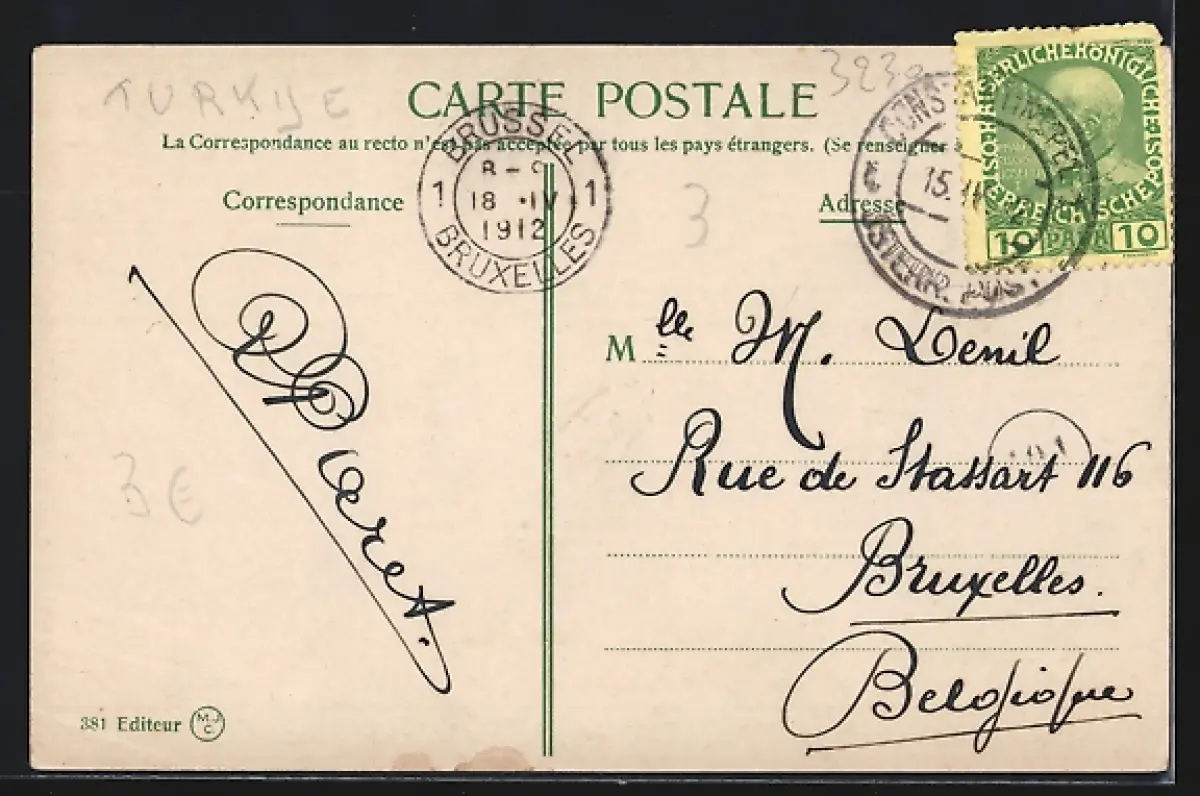 TURKIJE
3230
CARTE POSTALE
La Correspondance au recto n'est pas acceptée par tous les pays étrangers. (Se renseigner à
Correspondance
Adresse
3
BRUSSEL
1 18 ·IV· 1
1912
BRUXELLES
CONSTANTINOPEL
15
ÖSTERR. POST
KAISERLICHE KÖNIGLICHE
ÖSTERREICHISCHE POST
10 PARA 10
Mlle M. Denil
Rue de Stassart 116
Bruxelles.
Belgique
3€
381 Editeur MJC